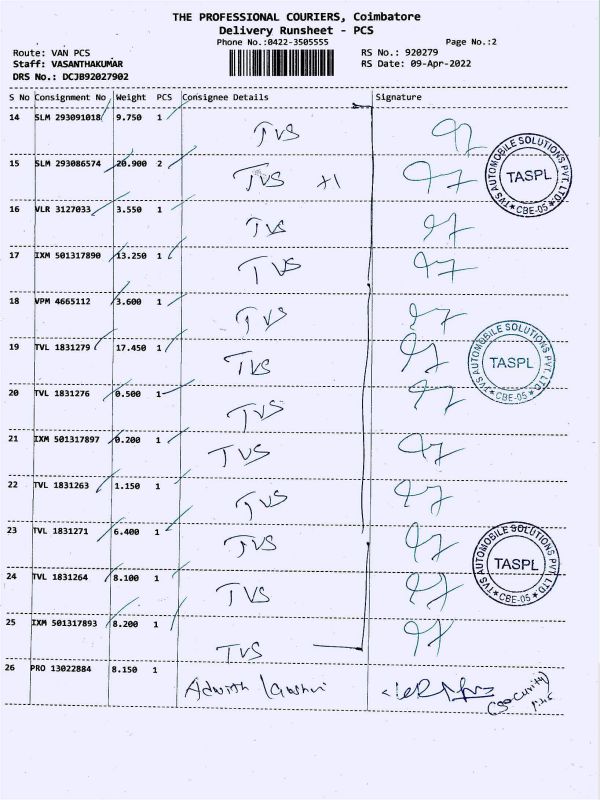 THE PROFESSIONAL COURIERS, Coimbatore
Delivery Runsheet - PCS
Phone No.:0422-3505555
Page No.:2
Route: VAN PCS
RS No.: 920279
Staff: VASANTHAKUMAR
RS Date: 09-Apr-2022
DRS No.: DCJB92027902
S No Consignment No Weight PCS Consignee Details Signature
14 SLM 293091018 9.750 1 TVS
15 SLM 293086574 20.900 2 TVS +1
16 VLR 3127033 3.550 1 TVS
17 IXM 501317890 13.250 1 TVS
18 VPM 4665112 3.600 1 TVS
19 TVL 1831279 17.450 1 TVS
20 TVL 1831276 0.500 1 TVS
21 IXM 501317897 0.200 1 TVS
22 TVL 1831263 1.150 1 TVS
23 TVL 1831271 6.400 1 TVS
24 TVL 1831264 8.100 1 TVS
25 IXM 501317893 8.200 1 TVS
26 PRO 13022884 8.150 1
(Security)
TVS AUTOMOBILE SOLUTIONS PVT. LTD.
TASPL
CBE-05
TVS AUTOMOBILE SOLUTIONS PVT. LTD.
TASPL
CBE-05
TVS AUTOMOBILE SOLUTIONS PVT. LTD.
TASPL
CBE-05